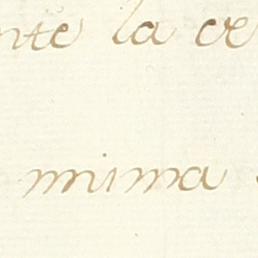 nte la ce
mima